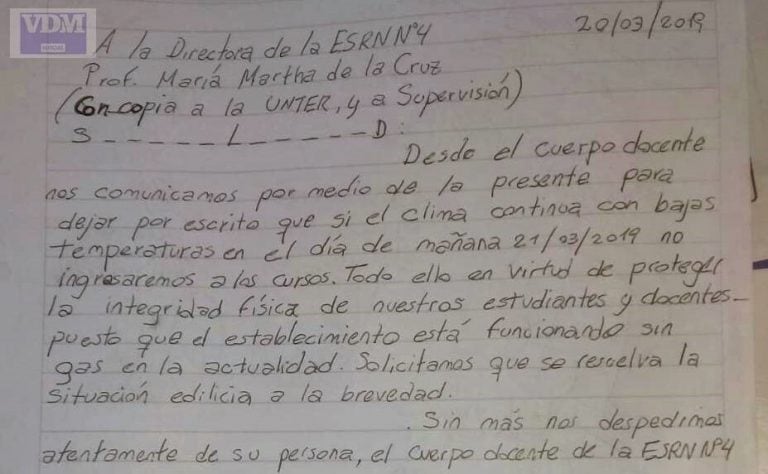 VDM
NOTICIAS
20/03/2019
A la Directora de la ESRN Nº4
Prof. María Martha de la Cruz
(Con copia a la UNTER, y a Supervisión)
S _ _ _ _ _ L _ _ _ _ _ _ D:
Desde el cuerpo docente
nos comunicamos por medio de la presente para
dejar por escrito que si el clima continua con bajas
temperaturas en el día de mañana 21/03/2019 no
ingresaremos a los cursos. Todo ello en virtud de proteger
la integridad física de nuestros estudiantes y docentes_
puesto que el establecimiento está funcionando sin
gas en la actualidad. Solicitamos que se resuelva la
situación edilicia a la brevedad.
. Sin más nos despedimos
atentamente de su persona, el cuerpo docente de la ESRN Nº4